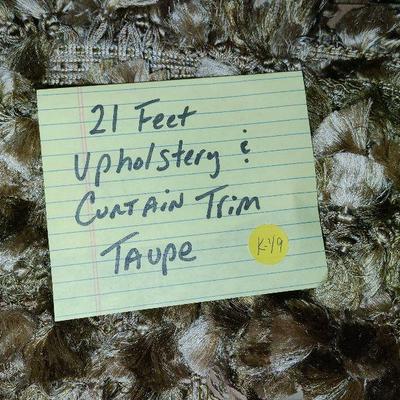 21 Feet
Upholstery &
Curtain Trim
Taupe
K-49